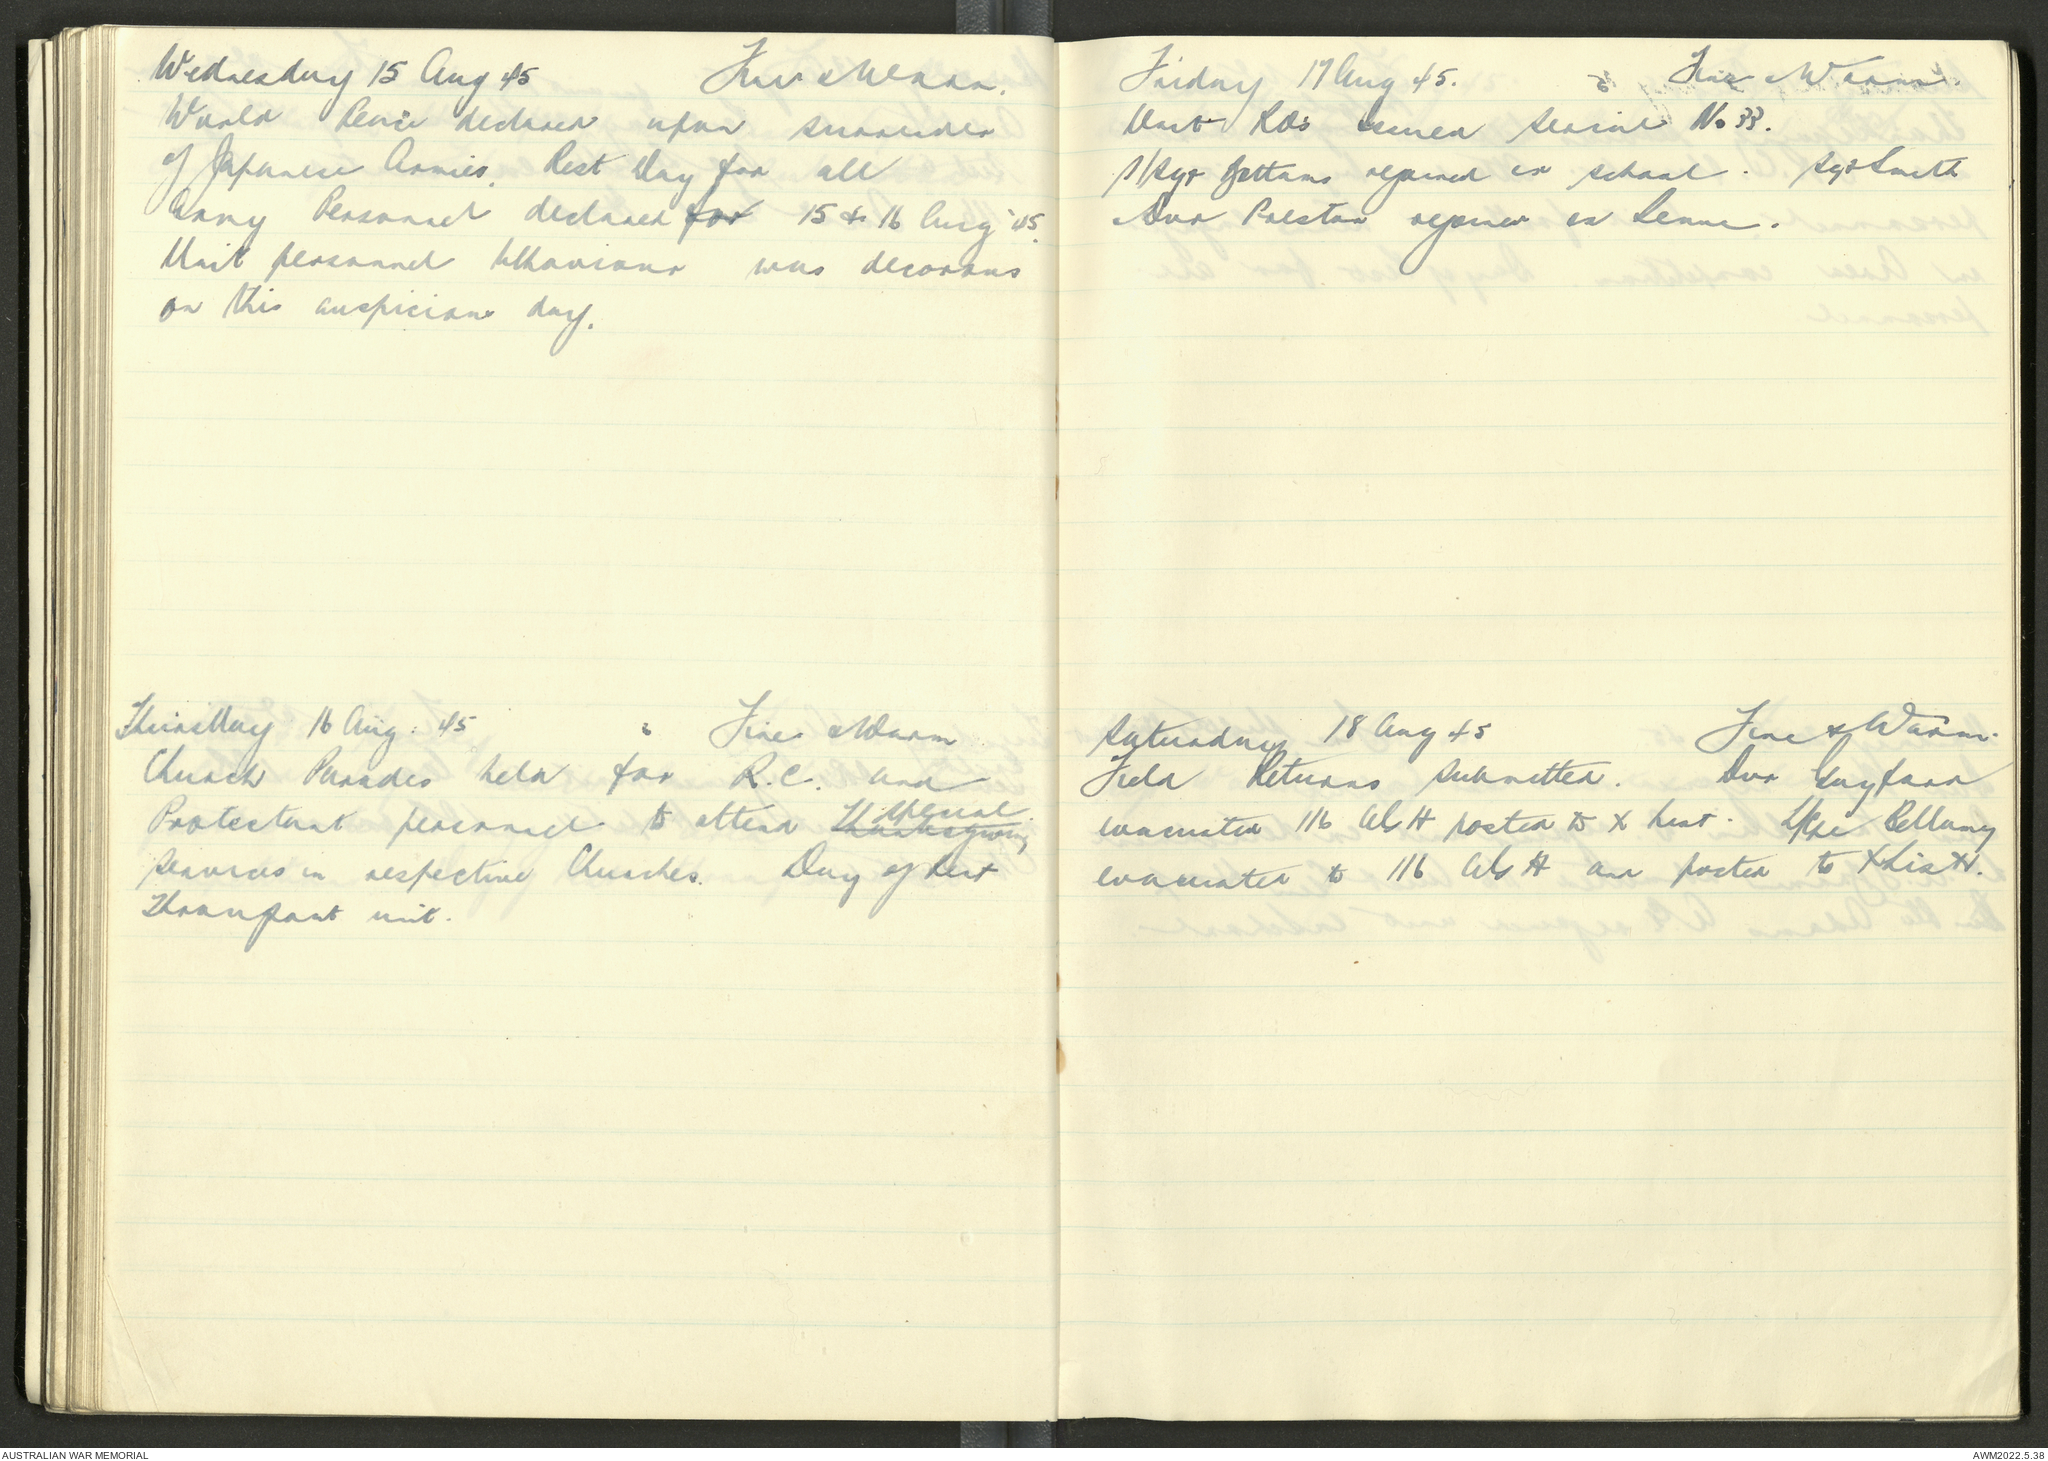 Wednesday 15 Aug 45 Fine & Warm.
World Peace declared upon surrender
of Japanese Armies. Rest Day for all
Army Personnel declared for 15 & 16 Aug 45.
Unit personnel behaviour was decorous
on this auspicious day.
Thursday 16 Aug. 45 Fine & Warm
Church Parades held for R.C. and
Protestant personnel to attend Thanksgiving special
services in respective Churches. Day of Rest
throughout unit.
Friday 17 Aug 45. Fine & Warm.
Unit ROs issued serial No 33.
S/Sgt rejoined ex school. Sgt Smith
Dvr Preston rejoined ex Leave.
Saturday 18 Aug 45 Fine & Warm.
Field Returns submitted. Dvr
evacuated 116 AGH posted to X list. L/Cpl Bellamy
evacuated to 116 AGH and posted to X list.
AUSTRALIAN WAR MEMORIAL
AWM2022.5.38